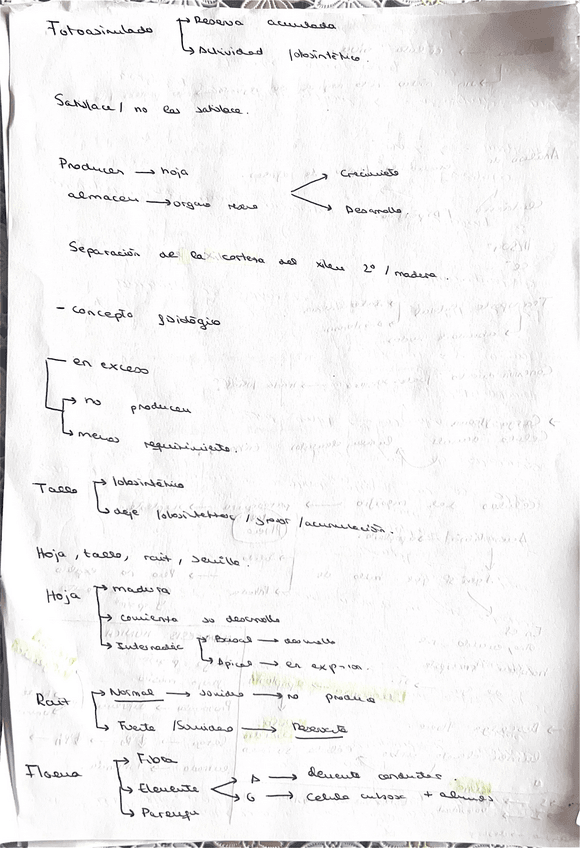 Fotoasimilado → Reserva acumulada
→ Actividad fotosintética.
Satisface / no las satisface.
Producen → hoja → Crecimiento
almacen → organo → Desarrollo
Separación de la corteza del xilema 2º / madera.
- Concepto fisiológico
en exceso
→ no producen
→ menos requirimiento.
Tallo → fotosintético
→ deje fotosintetizar / /acumulación.
Hoja, tallo, rait, semilla.
Hoja → madura
→ comienza su desarrollo
→ Intermedia → Basal → desarrollo
→ Apical → en
Rait → Normal → sumidero → no produce
→ Fuente /Sumidero → Reserva
Floema → Fibra
→ Elemento → A → elemento conductor.
→ G → Celula + albumi
→ Parenqui